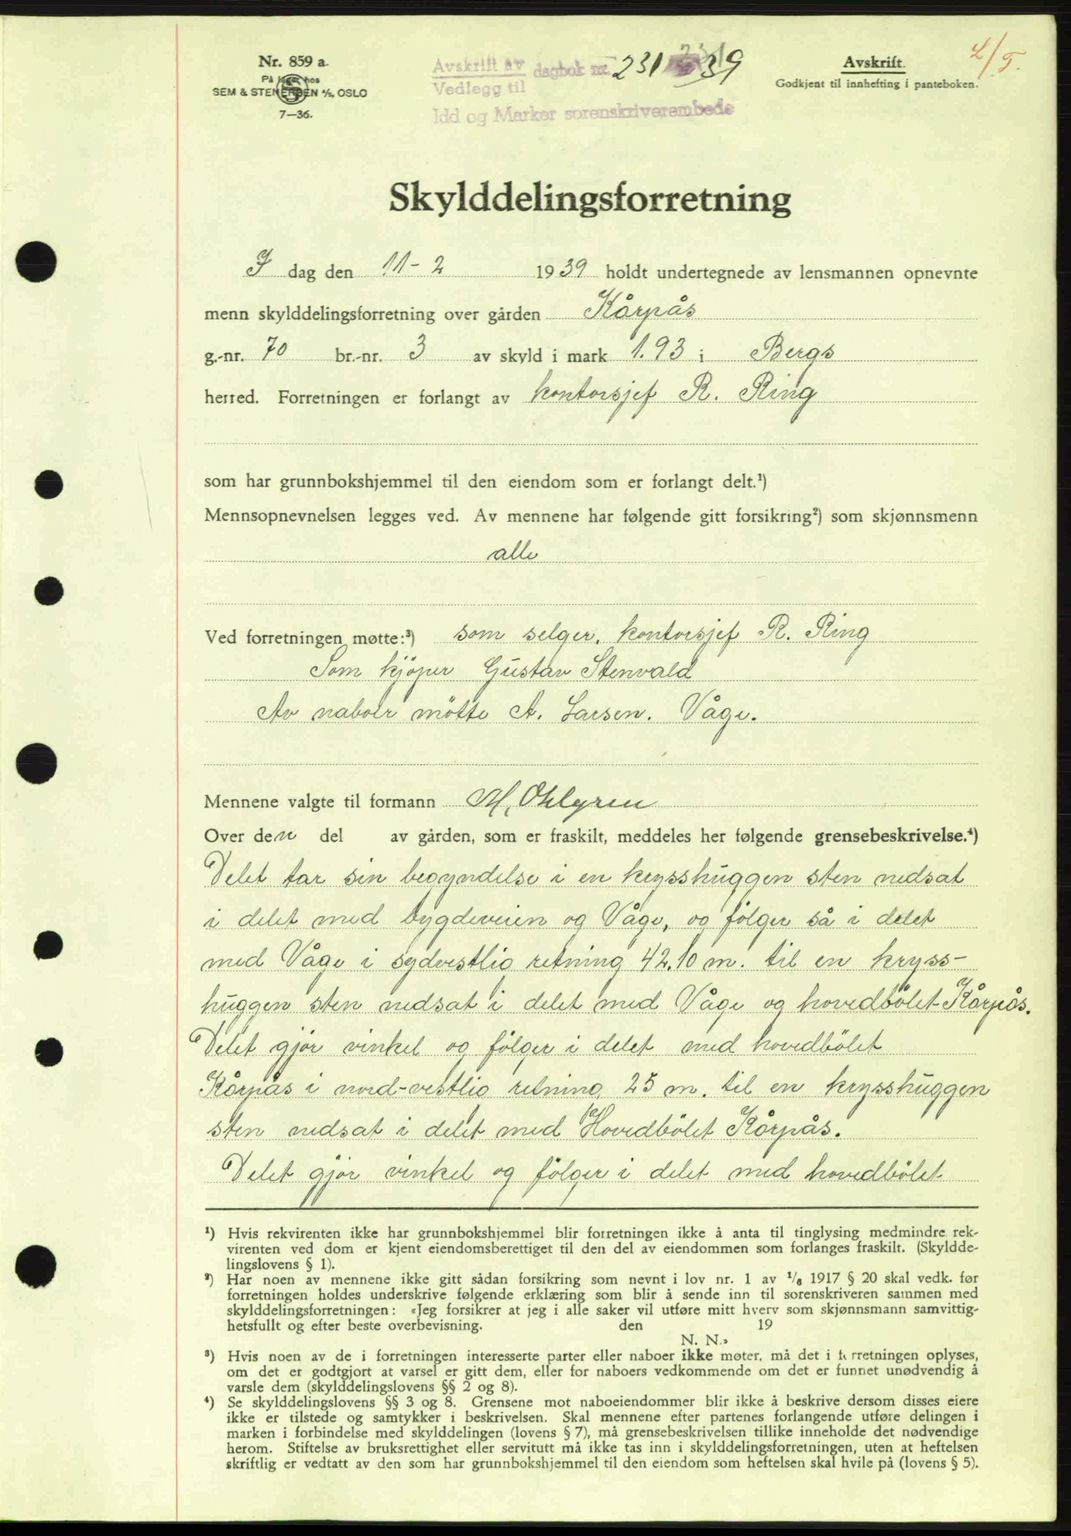 Nr. 859 a.
PÅ LAGER hos
SEM & STENERSEN A/S, OSLO
7—36.
Avskrift av dagbok nr. 231 39
Vedlegg til
Idd og Marker sorenskriverembede
Avskrift.
Godkjent til innhefting i panteboken.
Skylddelingsforretning
I dag den 11-2 1939 holdt undertegnede av lensmannen opnevnte
menn skylddelingsforretning over gården Kårpås
g.-nr. 70 br.-nr. 3 av skyld i mark 1.93 i Bergs
herred. Forretningen er forlangt av kontorsjef R. Ring
som har grunnbokshjemmel til den eiendom som er forlangt delt.¹)
Mennsopnevnelsen legges ved. Av mennene har følgende gitt forsikring²) som skjønnsmenn
alle
Ved forretningen møtte:³) som selger, kontorsjef R. Ring
Som kjöper Gustav Stenvald
Av naboer mötte A. Larsen. Våge.
Mennene valgte til formann M. Ohlgren
Over den del av gården, som er fraskilt, meddeles her følgende grensebeskrivelse.⁴)
Delet tar sin begyndelse i en krysshuggen sten nedsat
i delet med bygdeveien og Våge, og fölger så i delet
med Våge i sydvestlig retning 42.10 m. til en kryss-
huggen sten nedsat i delet med Våge og hovedbölet Kårpås.
Delet gjör vinkel og fölger i delet med hovedbölet
Kårpås i nord-vestlig retning 25 m. til en krysshuggen
sten nedsat i delet med Hovedbölet Kårpås.
Delet gjör vinkel og fölger i delet med hovedbölet
¹) Hvis rekvirenten ikke har grunnbokshjemmel blir forretningen ikke å anta til tinglysing medmindre rek-
virenten ved dom er kjent eiendomsberettiget til den del av eiendommen som forlanges fraskilt. (Skyldde-
lingslovens § 1).
²) Har noen av mennene ikke gitt sådan forsikring som nevnt i lov nr. 1 av 1/6 1917 § 20 skal vedk. før
forretningen holdes underskrive følgende erklæring som blir å sende inn til sorenskriveren sammen med
skylddelingsforretningen: «Jeg forsikrer at jeg i alle saker vil utføre mitt hverv som skjønnsmann samvittig-
hetsfullt og efter beste overbevisning. den 19
N. N.»
³) Hvis noen av de i forretningen interesserte parter eller naboer ikke møter, må det i forretningen oplyses,
om det er godtgjort at varsel er gitt dem, eller for naboers vedkommende om det er funnet unødvendig å
varsle dem (skylddelingslovens §§ 2 og 8).
⁴) Se skylddelingslovens §§ 3 og 8. Grensene mot naboeiendommer blir ikke å beskrive dersom disses eiere
ikke er tilstede og samtykker i beskrivelsen. Skal mennene efter partenes forlangende utføre delingen i
marken i forbindelse med skylddelingen (lovens § 7), må grensebeskrivelsen tillike inneholde det nødvendige
herom. Stiftelse av bruksrettighet eller servitutt må ikke tas inn i skylddelingsforretningen, uten at heftelsen
skriftlig er vedtatt av den som har grunnbokshjemmel til den eiendom som heftelsen skal hvile på (lovens § 5).